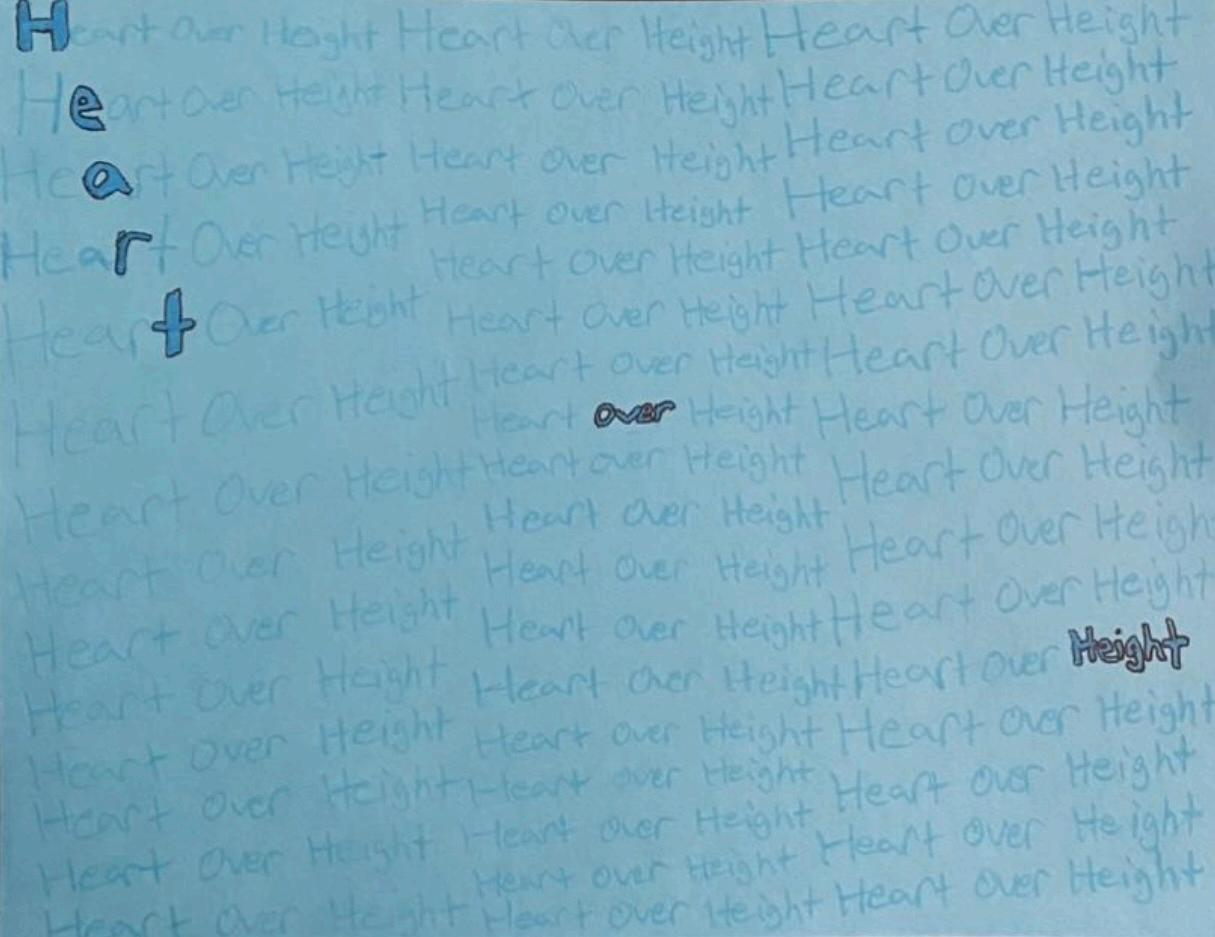 Heart Over Height Heart Over Height Heart Over Height
Heart Over Height Heart Over Height Heart Over Height
Heart Over Height Heart Over Height Heart Over Height
Heart Over Height Heart over Height Heart over Height
Heart over Height Heart Over Height
Heart Over Height Heart Over Height Heart Over Height
Heart Over Height Heart Over Height
Heart Over Height Heart over Height Heart Over Height
Heart Over Height Heart over Height Heart Over Height
Heart Over Height
Heart Over Height Heart Over Height Heart Over Heigh
Heart Over Height Heart Over Height Heart Over Height
Heart Over Heigh Heart Over Height Heart over Height
Heart Over Height Heart Over Height Heart Over Height
Heart Over Height Heart over Height Heart Over Height
Heart Over Height Heart over Height Heart over Height
Heart over Height
Heart Over Height Heart over Height Heart Over Height